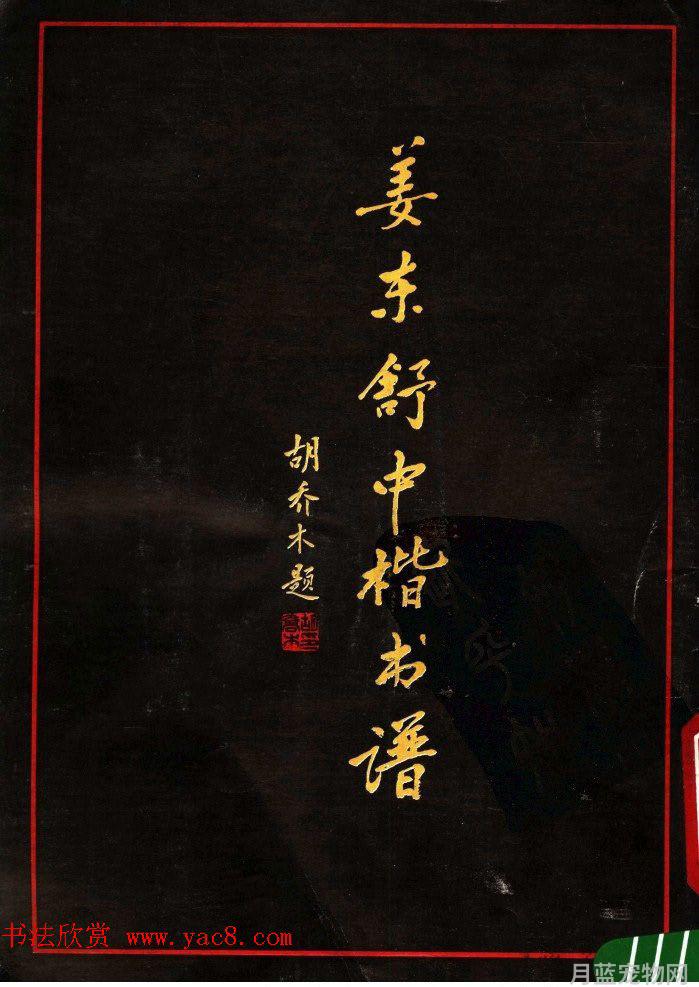 姜东舒中楷书谱
胡乔木题
书法欣赏 www.yac8.com
月蓝宠物网